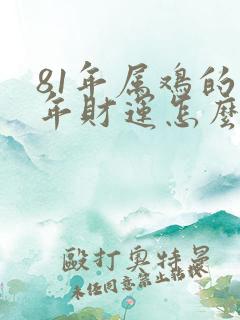 81年属鸡的
年财运怎麽
毆打奥特曼
未任同意禁止转饭